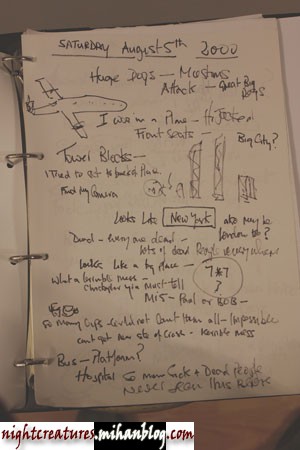 SATURDAY August 5th 2000
Huge Dogs — Muslims
Attack — Great Big
Dogs
I was in a Plane — Hijacked
Front Seats —
Big City?
Tower Blocks —
I Tried to get to back of Plane
Find My Camera
Looks Like NEW YORK also may be
London UK?
Dead — everyone dead —
lots of dead People everywhere
Looks Like a big place —
What a terrible mess —
7*7
?
Christopher you must tell
MI5 — Paul or BOB —
So many Cups could not Count them all — Impossible
Cant get near site of Crash — terrible mess
Bus — Platform?
Hospital So many Sick + Dead people
Never seen this before
nightcreatures.mihanblog.com